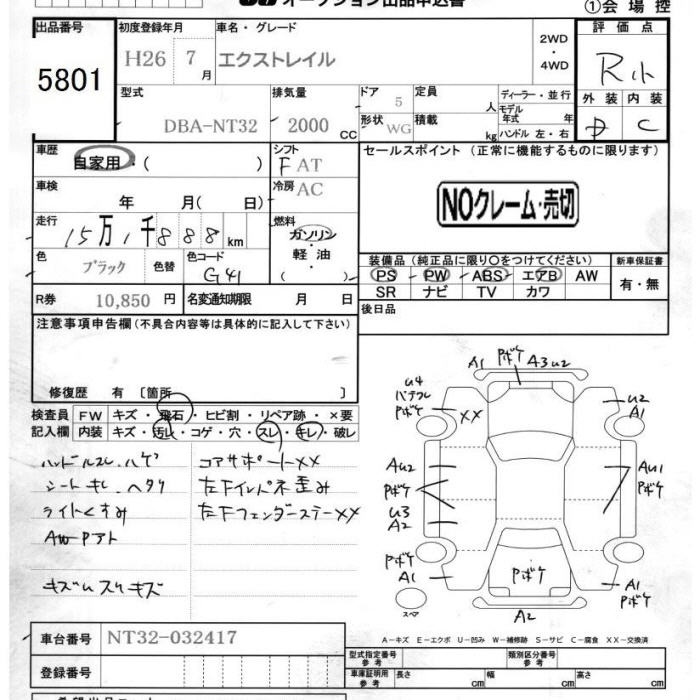 オークション出品申込書
①会場控
出品番号
5801
初度登録年月
H26 7月
車名・グレード
エクストレイル
2WD・4WD
評価点
R小
外装 内装
D C
型式
DBA-NT32
排気量
2000 CC
ドア 5
形状 WG
定員 人
積載 kg
ディーラー・並行
モデル年式 年
ハンドル 左・右
車歴
自家用・( )
シフト
F AT
冷房 AC
車検
年 月( 日)
走行
15万1千888km
燃料
ガソリン・軽油・( )
色
ブラック
色替
色コード
G41
R券 10,850円
名変通知期限 月 日
セールスポイント(正常に機能するものに限ります)
NOクレーム・売切
装備品(純正品に限り○をつけてください)
PS PW ABS エアB AW
SR ナビ TV カワ
新車保証書
有・無
後日品
注意事項申告欄(不具合内容等は具体的に記入して下さい)
修復歴 有〔箇所 〕
検査員記入欄
FW キズ・飛石・ヒビ割・リペア跡・×要
内装 キズ・汚レ・コゲ・穴・スレ・キレ・破レ
ハンドルスレ、ハゲ
シートキレ、ヘタリ
ライトくすみ
AWPアト
キズムスリキズ
コアサポートXX
左Fインパネ歪み
左FフェンダーステーXX
A1 Pボケ A3U2
U4
Pボケ
XX
U2
A1
AU2
Pボケ
U3
A2
AU1
Pボケ
Pボケ
A1
Pボケ
A1
Pボケ
スペア
A2
A-キズ E-エクボ U-凹み W-補修跡 S-サビ C-腐食 XX-交換済
車台番号 NT32-032417
登録番号
型式指定番号 参考
類別区分番号 参考
車庫証明用 参考 長さ cm 幅 cm 高さ cm